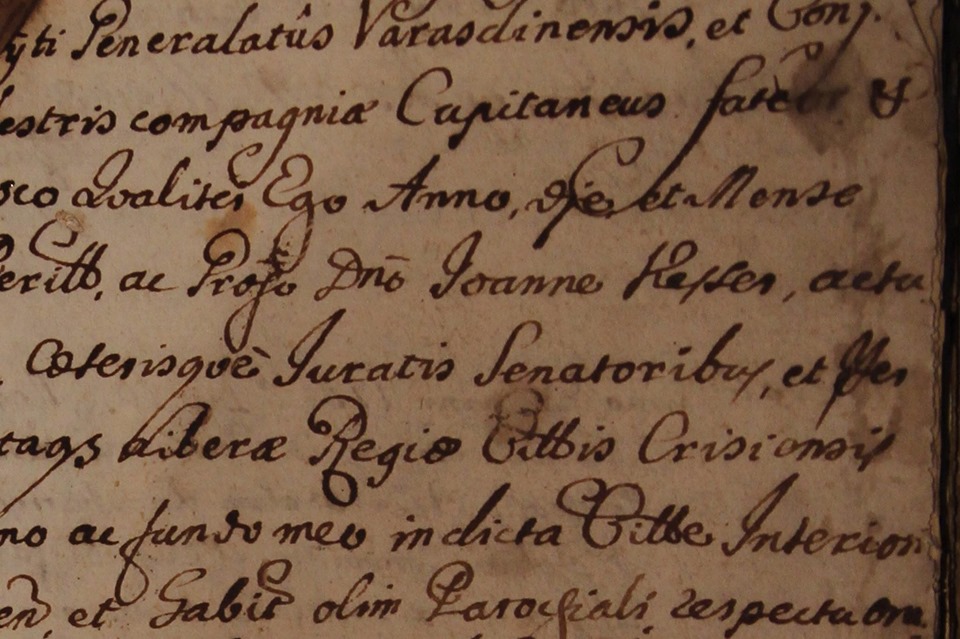 yti Generalatûs Varasdinensis, et Conf.
estris compagniæ Capitaneus fateor &
sco Qualiter Ego Anno, die, et Mense
ac Proso Dnō Joanne Kesser, actu
Cæterisquè Juratis Senatoribus, et
Liberæ Regiæ Villæ Crisiensis
no ac fundo meo in dicta Villa Interiori
et Gabit olim Parochiali, respectu